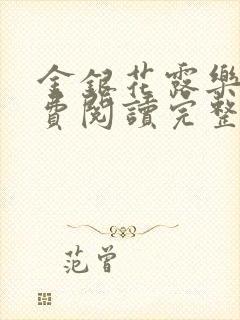 金銀花露樂
費閱讀完整
范曾